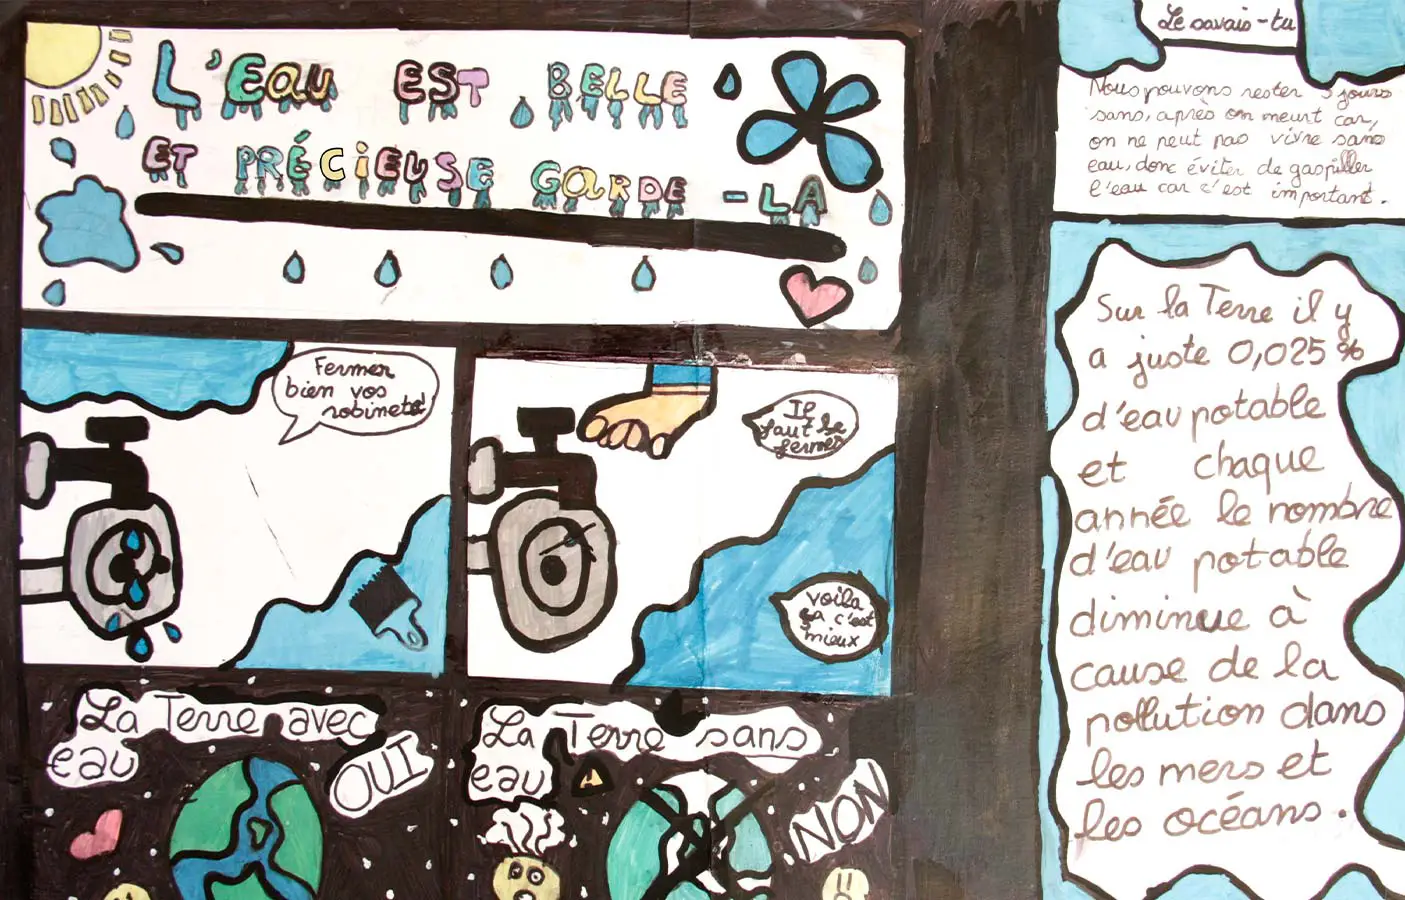 L'EAU EST BELLE
ET PRÉCIEUSE GARDE-LA
Fermer
bien vos
robinets!
Il
faut le
fermer
voila
ça c'est
mieux
La Terre avec
eau
OUI
La Terre sans
eau
NON
Le savais-tu
Nous pouvons rester 3 jours
sans, après on meurt car,
on ne peut pas vivre sans
eau, donc éviter de gaspiller
l'eau car c'est important.
Sur la Terre il y
a juste 0,025 %
d'eau potable
et chaque
année le nombre
d'eau potable
diminue à
cause de la
pollution dans
les mers et
les océans.